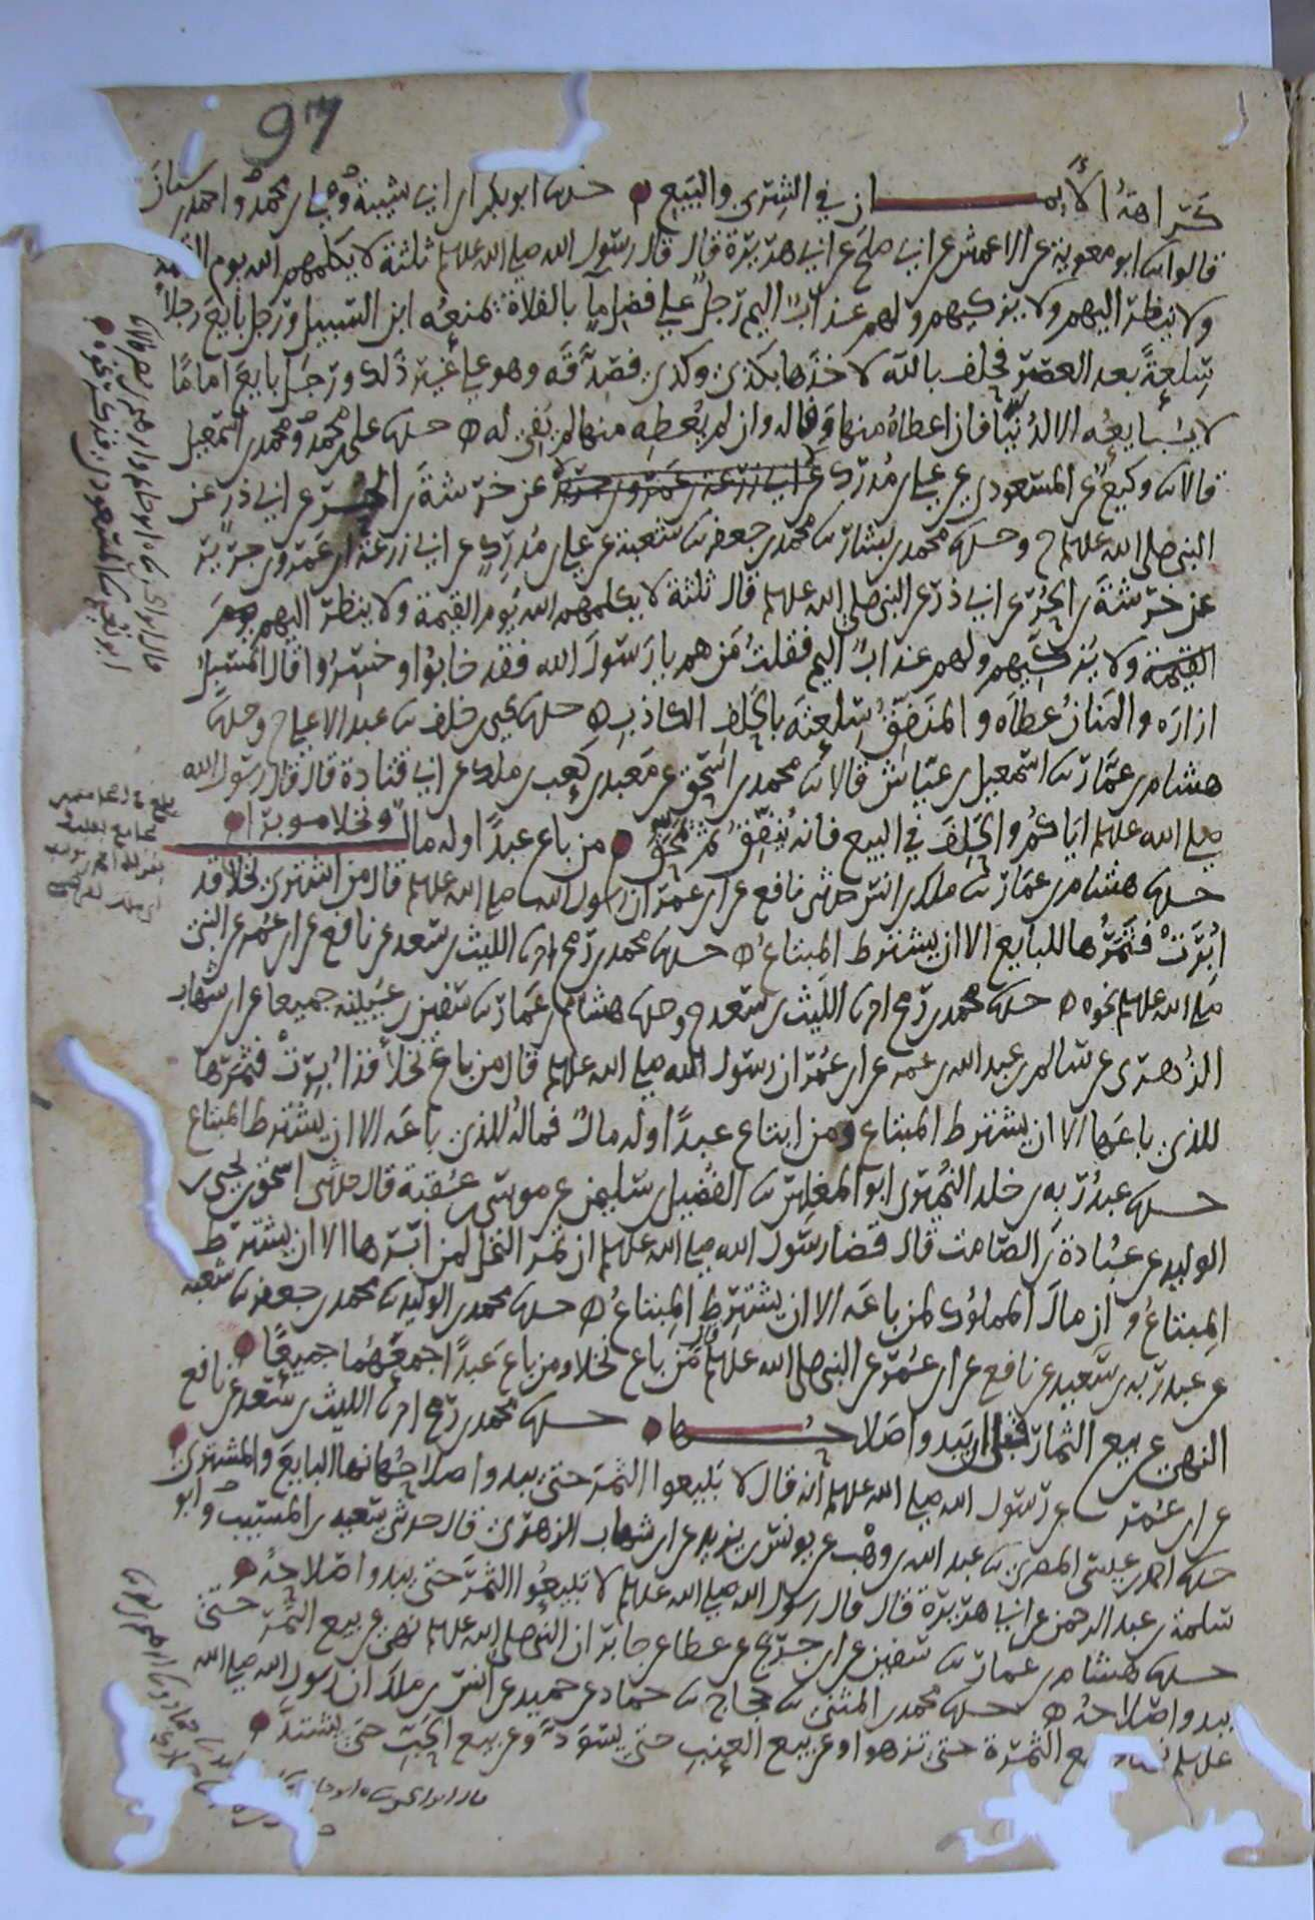 97
كراهة الأيمان في الشرى والبيع حدثنا ابو بكر بن ابي شيبة وعلي بن محمد واحمد بن سنان
قالوا ثنا ابو معوية عن الاعمش عن ابي صلح عن ابي هريرة قال قال رسول الله صلى الله عليه وسلم ثلثة لا يكلمهم الله يوم القيمة
ولا ينظر اليهم ولا يزكيهم ولهم عذاب اليم رجل على فضل ماء بالفلاة يمنعه ابن السبيل ورجل بايع رجلا
سلعة بعد العصر فحلف بالله لاخذها بكذى وكذى فصدقه وهو على غير ذلك ورجل بايع اماما
لا يبايعه الا لدنيا فان اعطاه منها وفا له وان لم يعطه منها لم يفي له حدثنا علي بن محمد ومحمد بن اسمعيل
قالا ثنا وكيع عن المسعودي عن علي بن مدرك عن خرشة بن الحر عن ابي ذر عن
النبي صلى الله عليه وسلم ح وحدثنا محمد بن بشار ثنا محمد بن جعفر ثنا شعبة عن علي بن مدرك عن ابي زرعة بن عمرو بن جرير
عن خرشة بن الحر عن ابي ذر عن النبي صلى الله عليه وسلم قال ثلثة لا يكلمهم الله يوم القيمة ولا ينظر اليهم يوم
القيمة ولا يزكيهم ولهم عذاب اليم فقلت من هم يا رسول الله فقد خابوا وخسروا قال المسبل
ازاره والمنان عطاه والمنفق سلعته بالحلف الكاذب حدثنا يحيى بن خلف ثنا عبد الاعلى ح وحدثنا
هشام بن عمار ثنا اسمعيل بن عياش قالا ثنا محمد بن اسحق عن معبد بن كعب بن ملك عن ابي قتادة قال قال رسول الله
صلى الله عليه وسلم اياكم والحلف في البيع فانه ينفق ثم يمحق من باع عبدا وله مال ونخلا موبرا
حدثنا هشام بن عمار ثنا ملك بن انس حدثني نافع عن ابن عمر ان رسول الله صلى الله عليه وسلم قال من اشترى نخلا قد
ابرت فثمرها للبايع الا ان يشترط المبتاع حدثنا محمد بن رمح انا الليث بن سعد عن نافع عن ابن عمر عن النبي
صلى الله عليه وسلم نحوه حدثنا محمد بن رمح انا الليث بن سعد ح وحدثنا هشام بن عمار ثنا سفين بن عيينة جميعا عن ابن شهاب
الزهري عن سالم بن عبد الله بن عمر عن ابن عمر ان رسول الله صلى الله عليه وسلم قال من باع نخلا قد ابرت فثمرتها
للذي باعها الا ان يشترط المبتاع ومن ابتاع عبدا وله مال فماله للذي باعه الا ان يشترط المبتاع
حدثنا عبد ربه بن خلد النميري ابو المغلس ثنا الفضيل بن سليمن عن موسى بن عقبة قال حدثني اسحق بن يحيى بن
الوليد عن عبادة بن الصامت قال قضا رسول الله صلى الله عليه وسلم ان ثمر النخل لمن ابرها الا ان يشترط
المبتاع وان مال المملوك لمن باعه الا ان يشترط المبتاع حدثنا محمد بن الوليد ثنا محمد بن جعفر ثنا شعبة
عن عبد ربه بن سعيد عن نافع عن ابن عمر عن النبي صلى الله عليه وسلم قال من باع نخلا ومن باع عبدا جمعهما جميعا
النهي عن بيع الثمار قبل ان يبدوا صلاحها حدثنا محمد بن رمح انا الليث بن سعد عن نافع
عن ابن عمر عن رسول الله صلى الله عليه وسلم انه قال لا تبيعوا الثمر حتى يبدوا صلاحها نها البايع والمشتري
حدثنا احمد بن عيسى المصري ثنا عبد الله بن وهب عن يونس بن يزيد عن ابن شهاب الزهري قال حدثني سعيد بن المسيب وابو
سلمة بن عبد الرحمن عن ابي هريرة قال قال رسول الله صلى الله عليه وسلم لا تبيعوا الثمر حتى يبدوا صلاحه
حدثنا هشام بن عمار ثنا سفين عن ابن جريج عن عطا عن جابر ان النبي صلى الله عليه وسلم نهى عن بيع الثمر حتى
يبدوا صلاحه حدثنا محمد بن المثنى ثنا حجاج ثنا حماد عن حميد عن انس بن ملك ان رسول الله صلى الله
عليه وسلم بيع الثمرة حتى تزهوا وعن بيع العنب حتى يسود وعن بيع الحب حتى يشتد